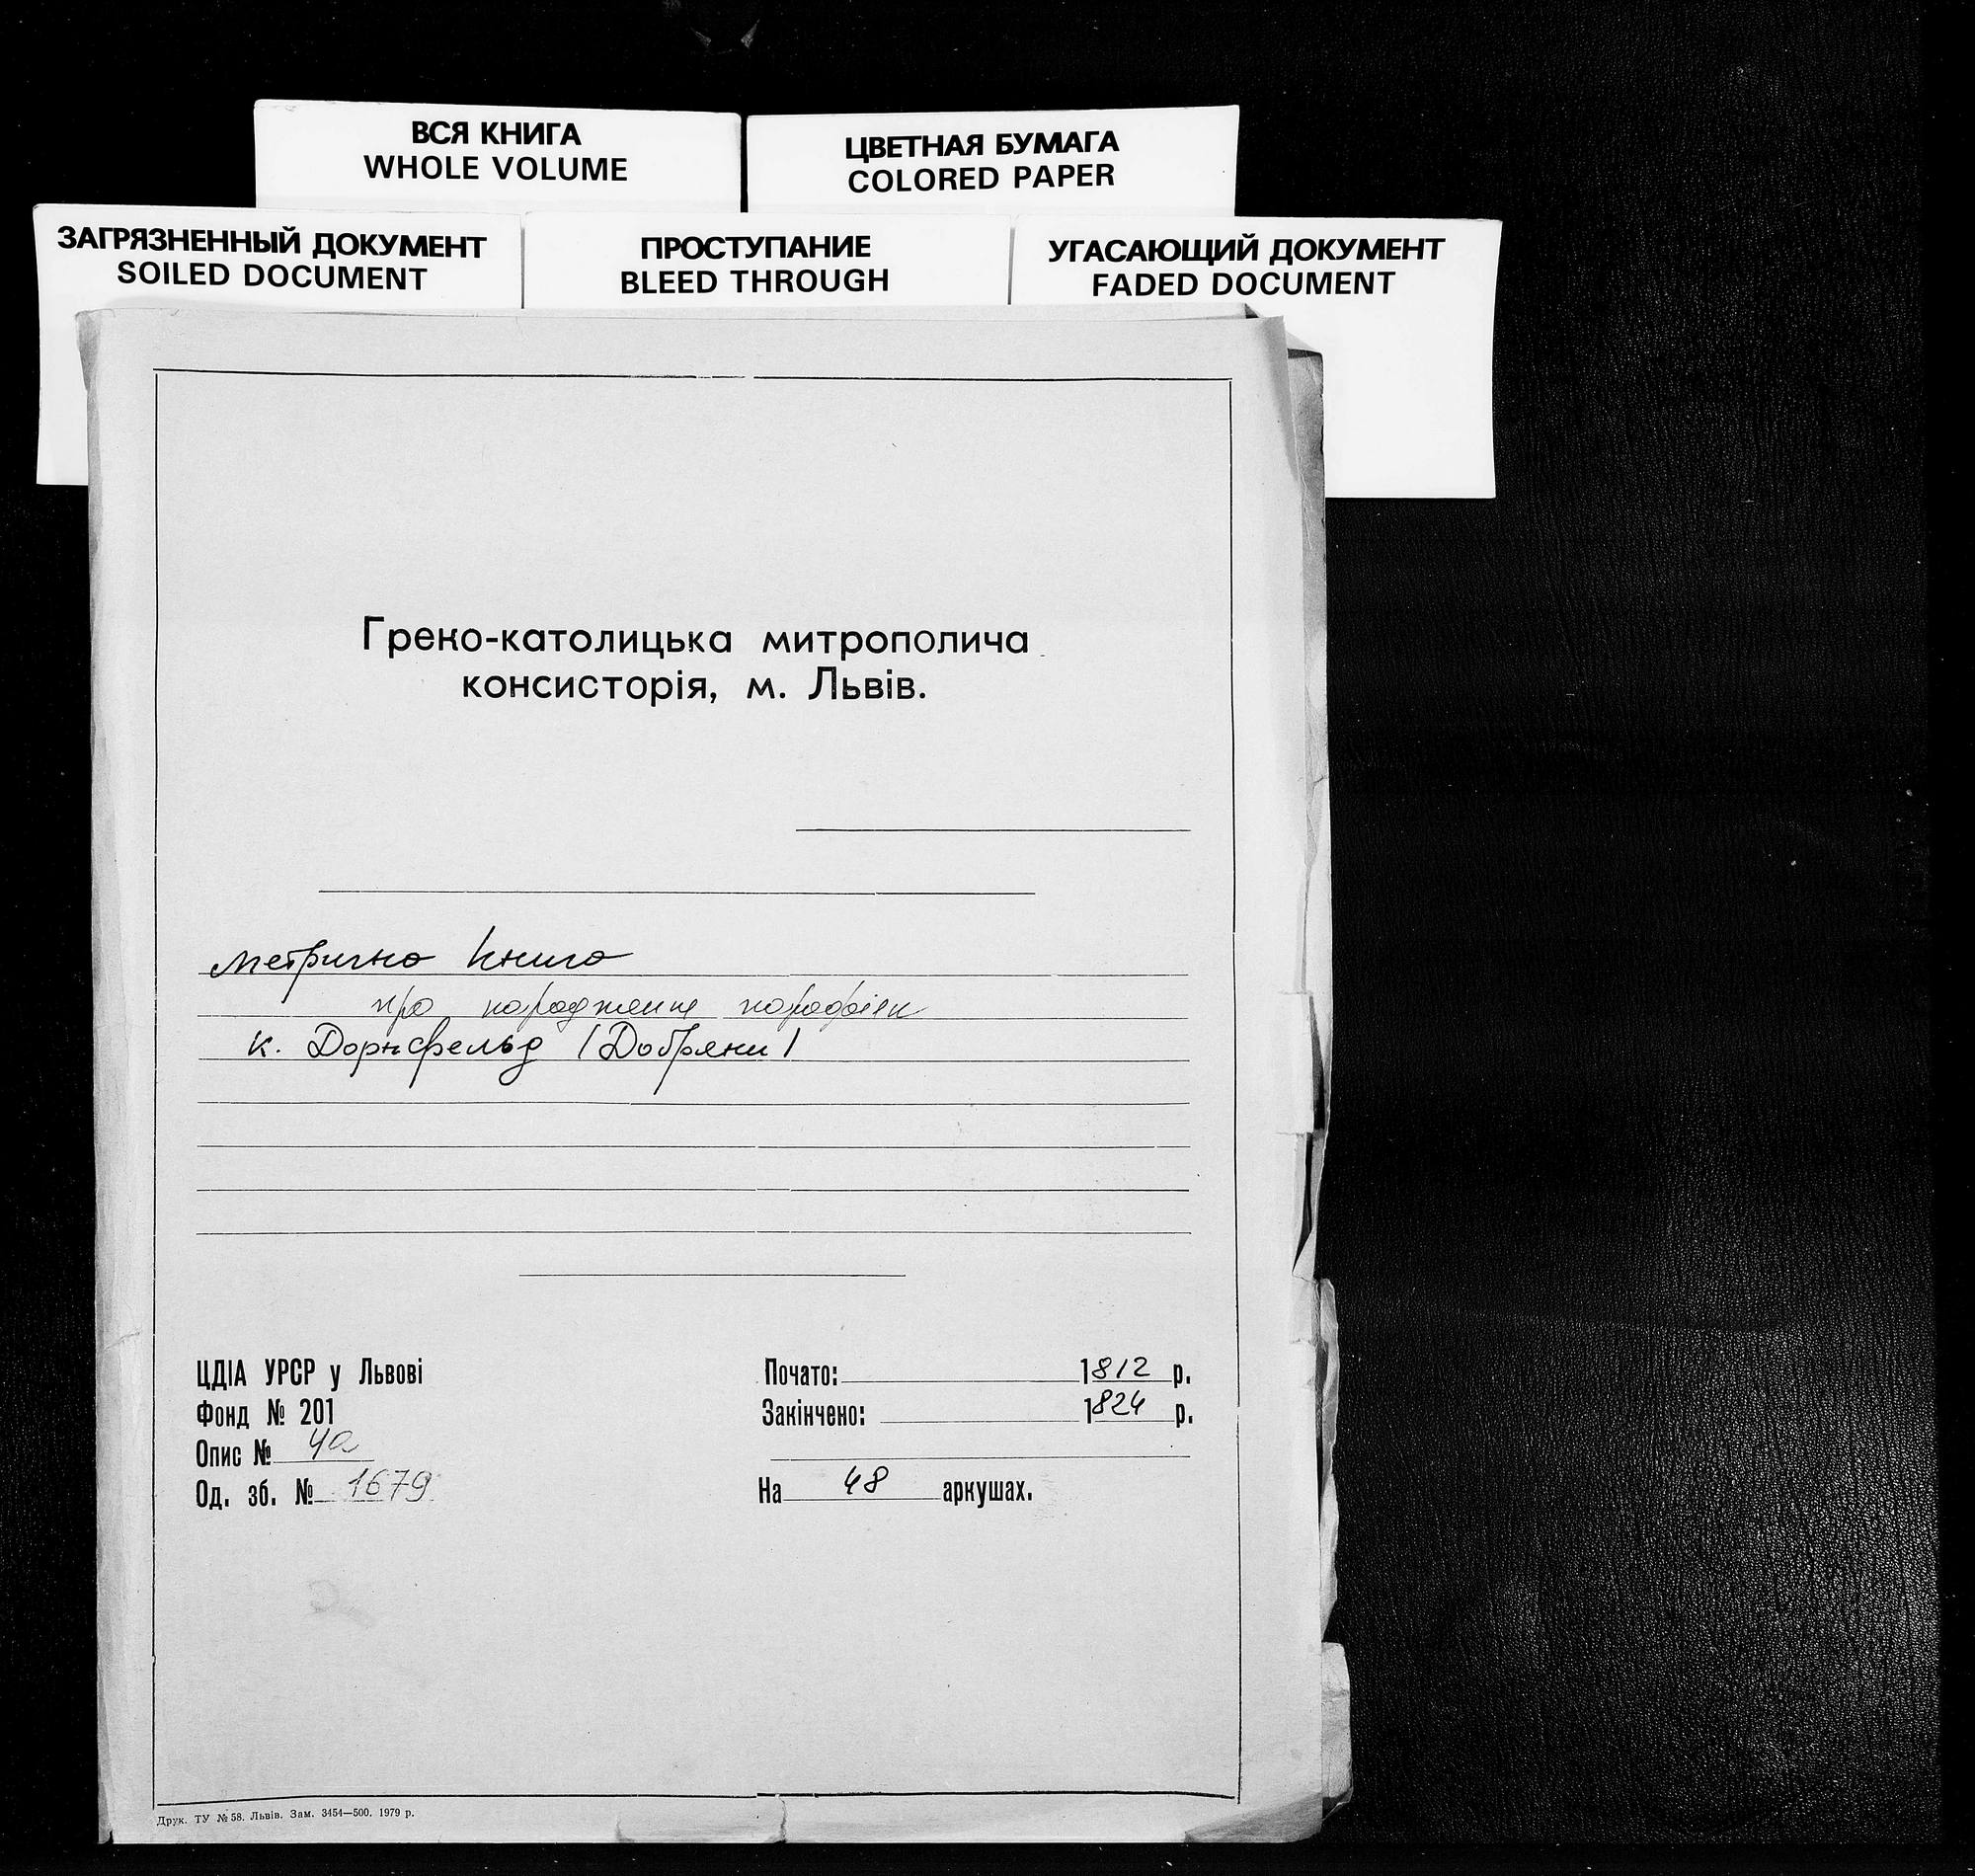 ВСЯ КНИГА
WHOLE VOLUME
ЦВЕТНАЯ БУМАГА
COLORED PAPER
ЗАГРЯЗНЕННЫЙ ДОКУМЕНТ
SOILED DOCUMENT
ПРОСТУПАНИЕ
BLEED THROUGH
УГАСАЮЩИЙ ДОКУМЕНТ
FADED DOCUMENT
Греко-католицька митрополича
консисторія, м. Львів.
метрична книга
про народження парафіян
к. Дорнфельд /Добряни/
ЦДІА УРСР у Львові
Фонд № 201
Опис № 4а
Од. зб. № 1679
Почато: 1812 р.
Закінчено: 1824 р.
На 48 аркушах.
Друк. ТУ № 58. Львів. Зам. 3454—500. 1979 р.